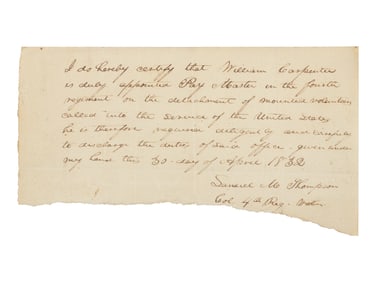 I do hereby certify that William Carpenter
is duly appointed Pay Master in the fourth
regiment on the detachment of mounted volunteers
called into the service of the United States
he is therefore required diligently and carefully
to discharge the duties of said office - given under
my hand this 30 - day of April 1832
Samuel M Thompson
Col 4th Reg